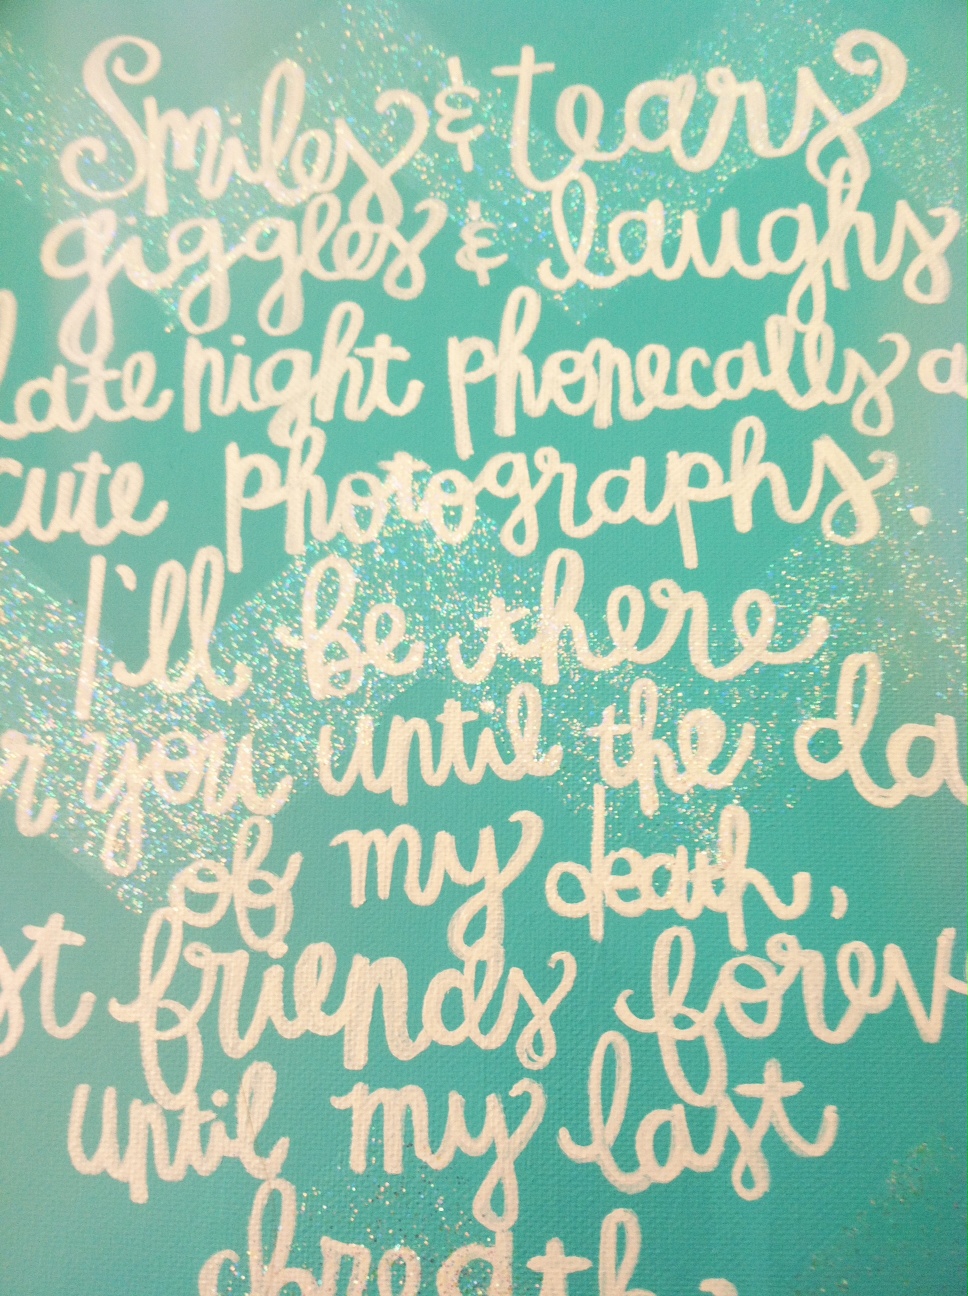 Smiles & tears
giggles & laughs
late night phonecalls a
cute photographs.
I'll be there
r you until the da
of my death,
st friends forev
until my last
breath.